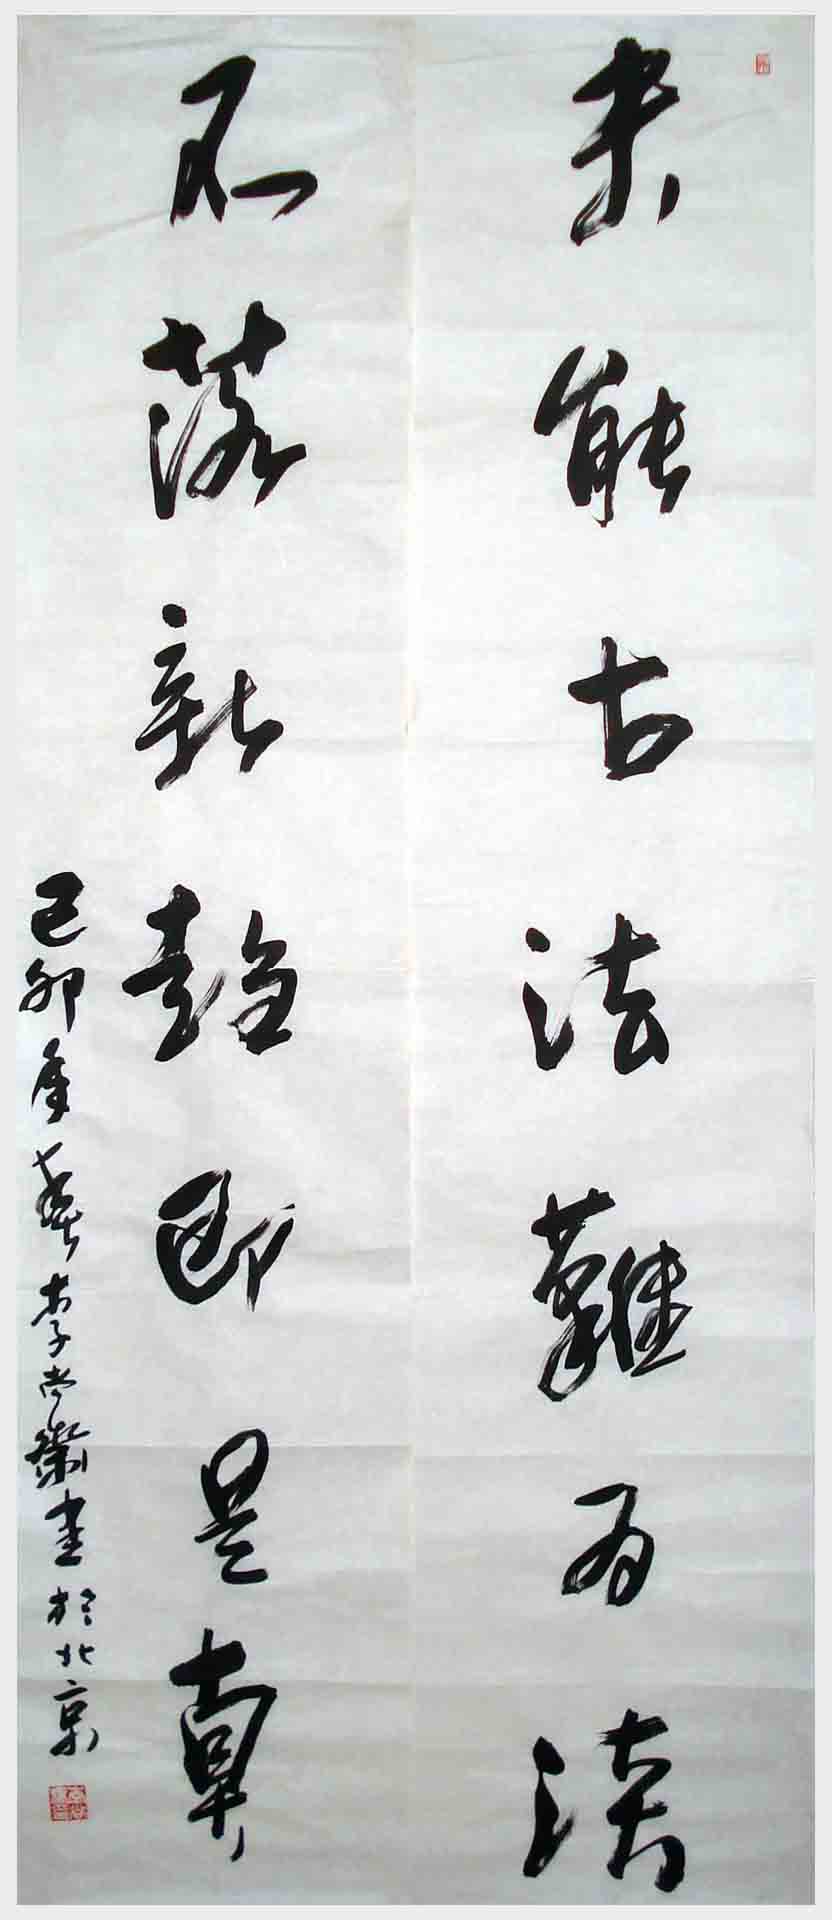 未能古法難為
不落新即是
己卯年春李尚衛書於北京